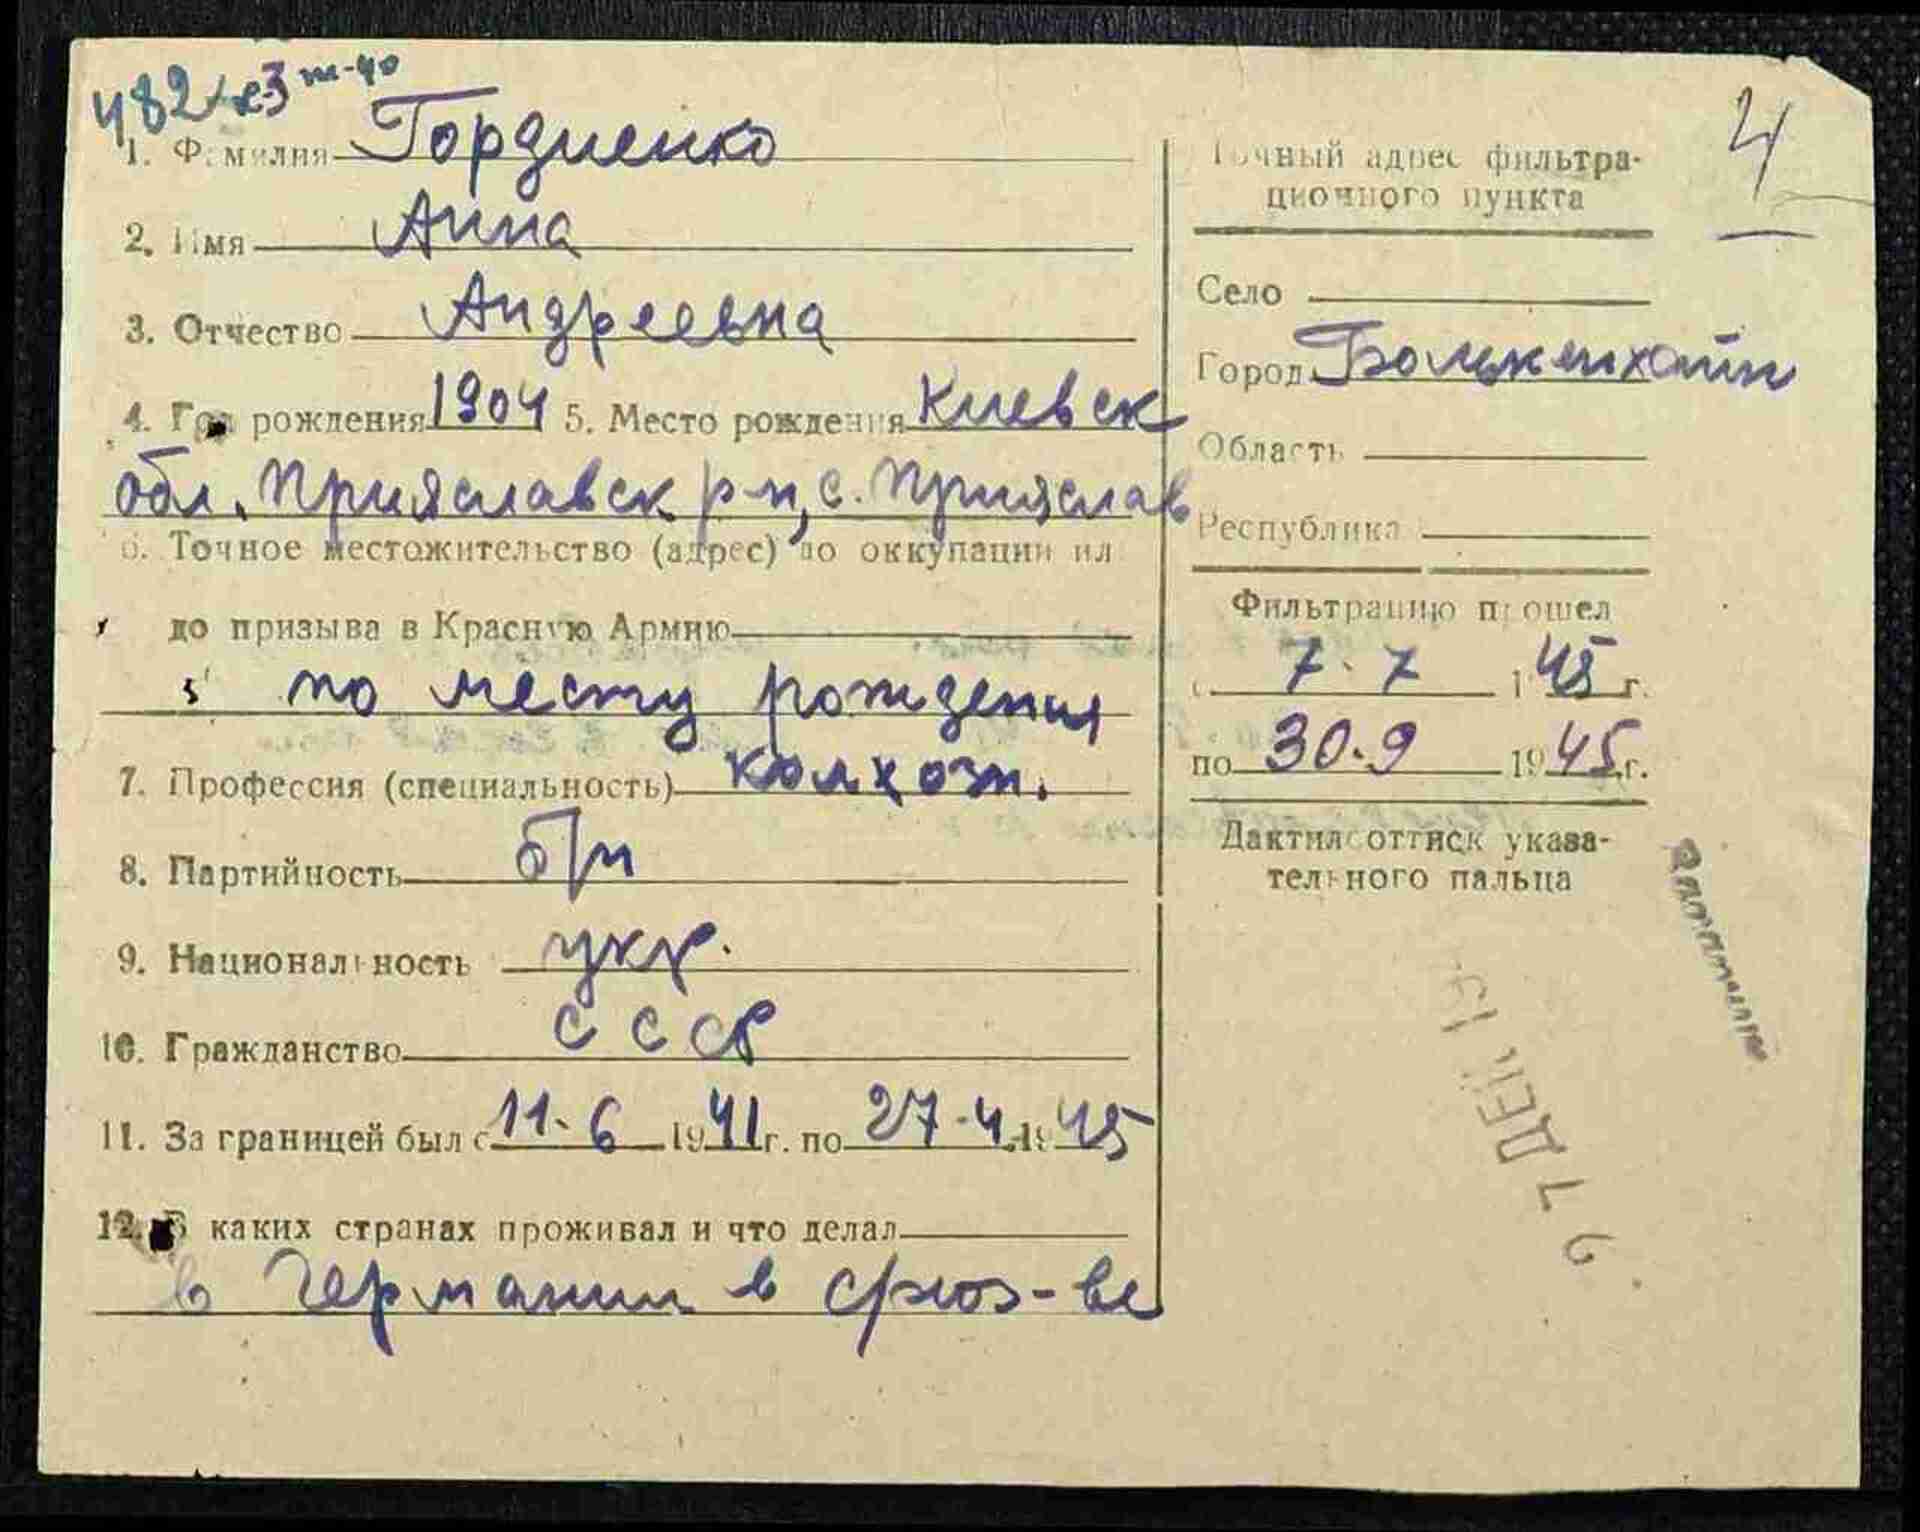 1. Фамилия Гордиенко
2. Имя Анна
3. Отчество Андреевна
4. Год рождения 1904 5. Место рождения Киевск
обл. Прияславск р-н, с. Прияслав
6. Точное местожительство (адрес) до оккупации ил
до призыва в Красную Армию
по месту рождения
7. Профессия (специальность) колхозн.
8. Партийность б/п
9. Национальность укр.
10. Гражданство СССР
11. За границей был с 11.6 1941 г. по 27.4.1945
12. В каких странах проживал и что делал
в Германии в
4
Точный адрес фильтра-
ционного пункта
Село
Город Болькенхайн
Область
Республика
Фильтрацию прошел
с 7.7 1945 г.
по 30.9 1945 г.
Дактилооттиск указа-
тельного пальца
ДЕК